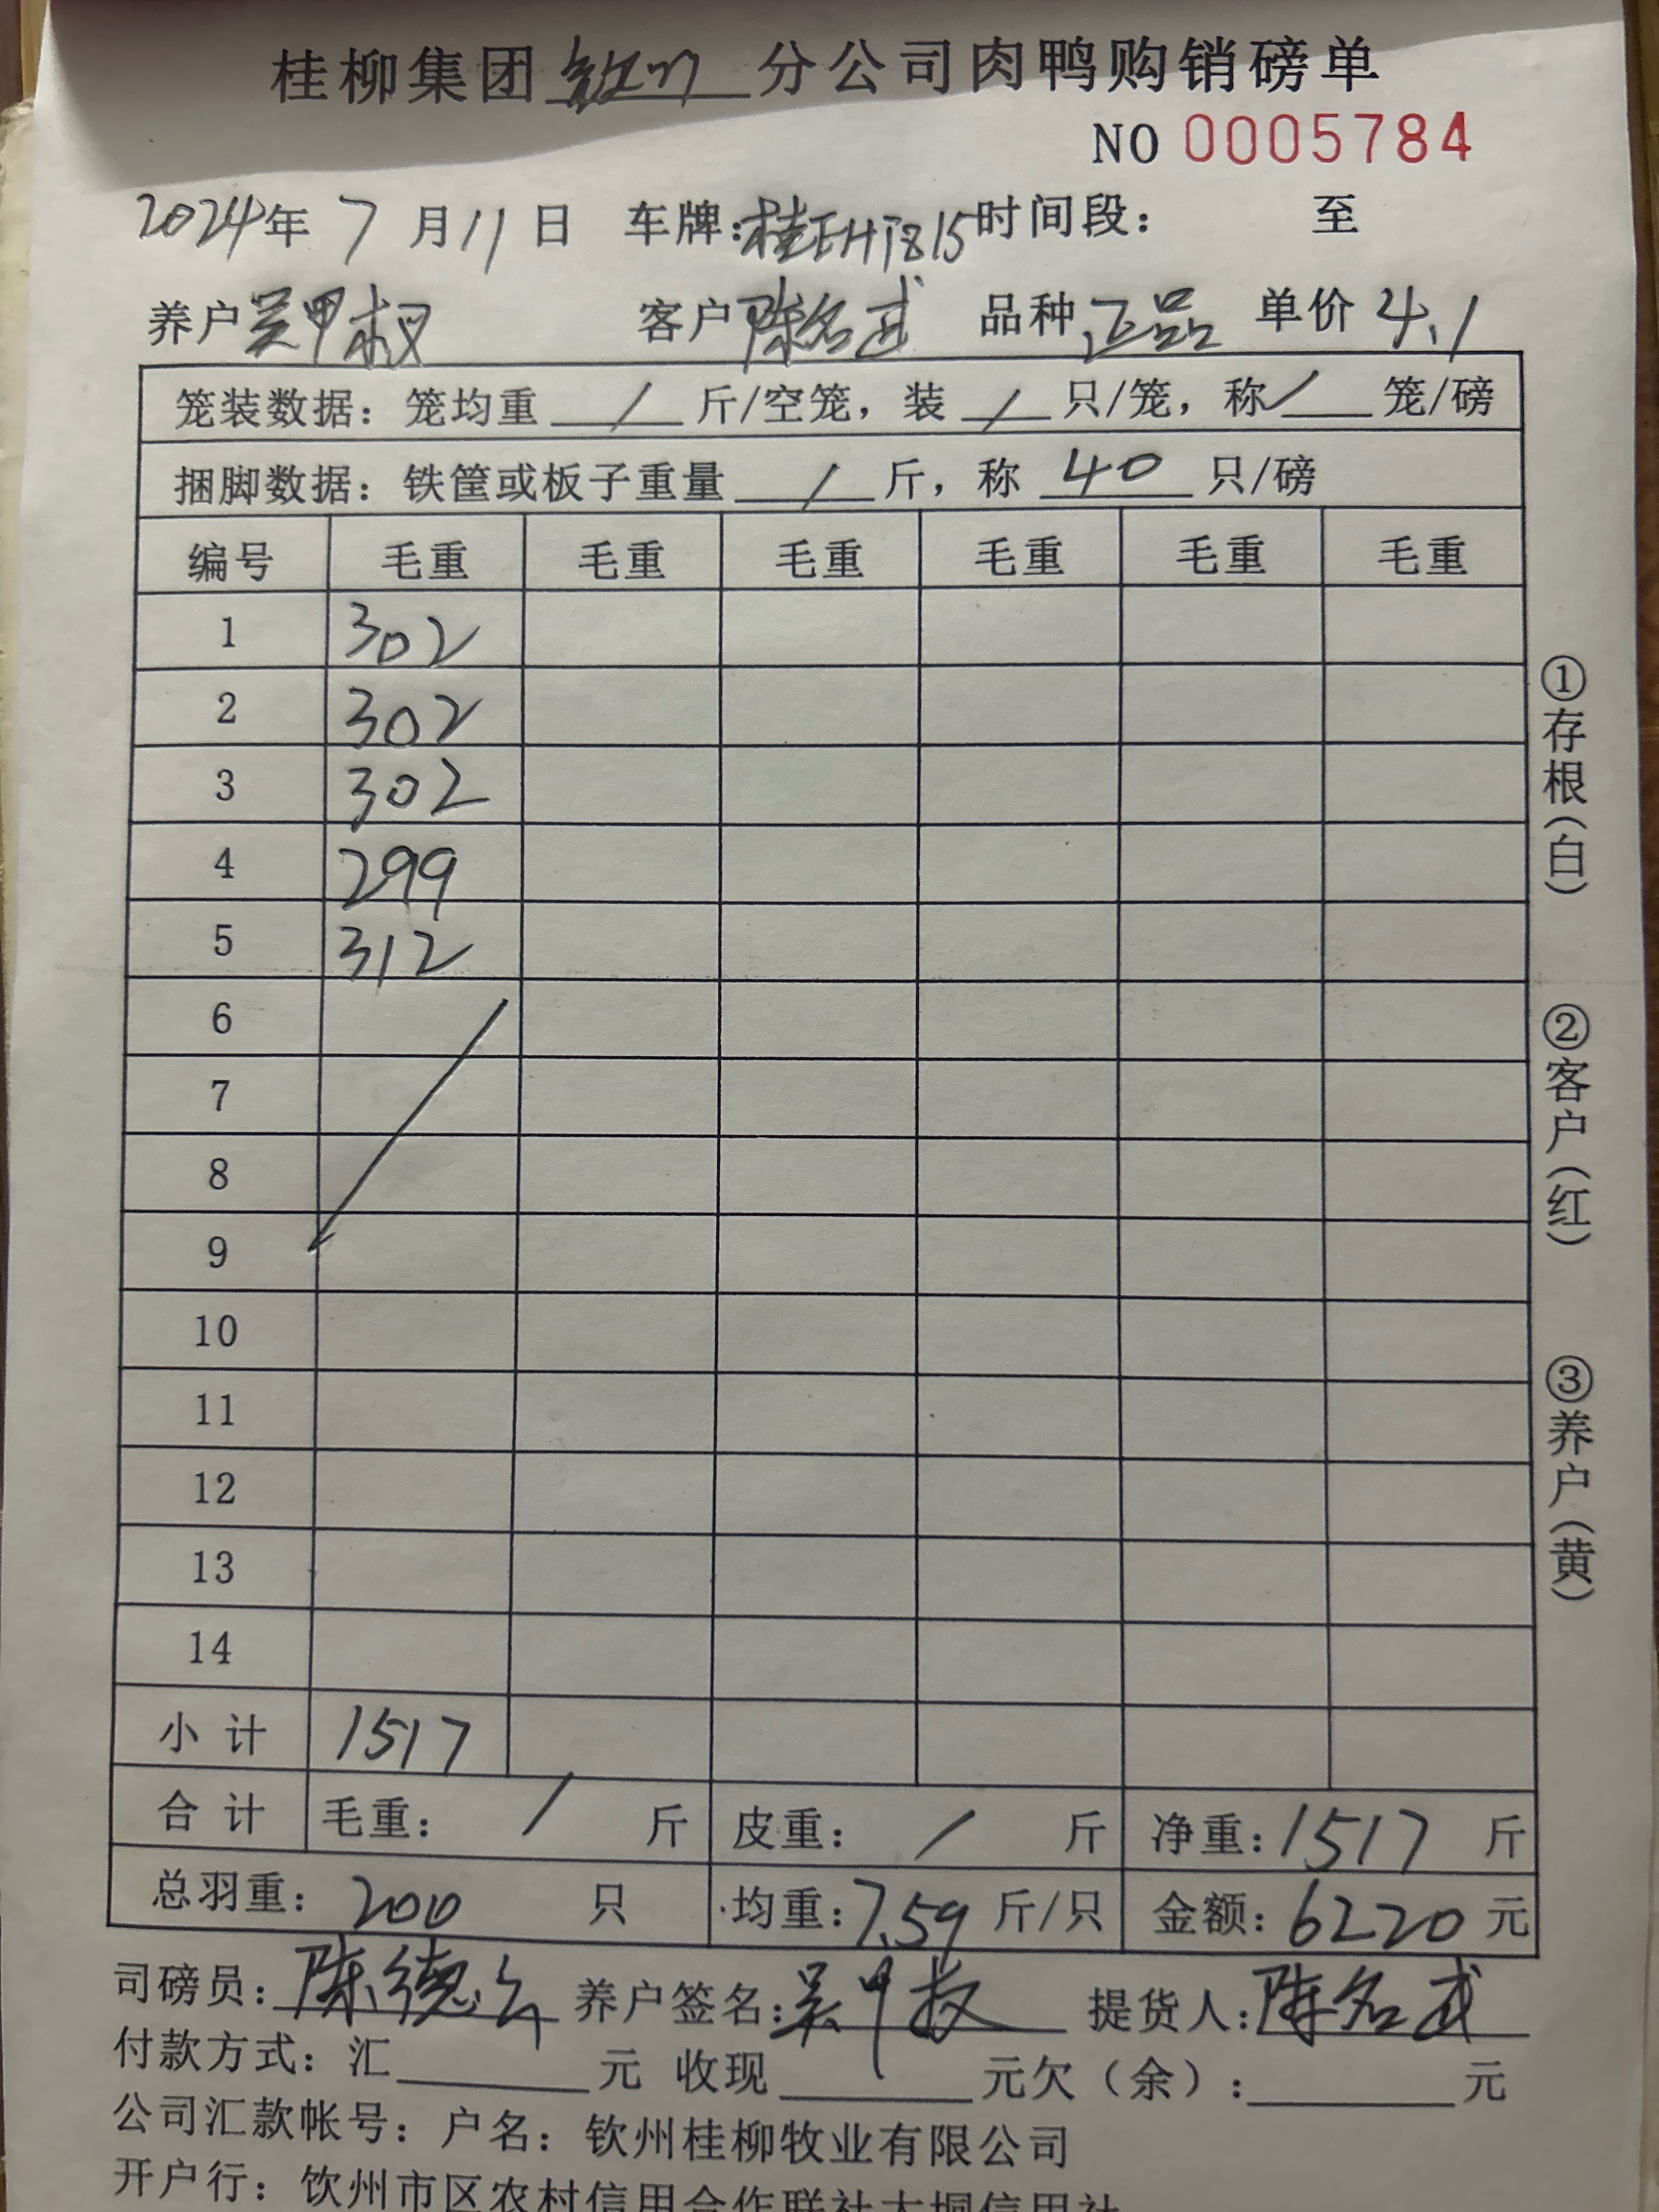 桂柳集团钦州分公司肉鸭购销磅单
NO 0005784
2024年 7 月 11 日 车牌:桂EHT815 时间段: 至
养户 吴甲权 客户 陈名武 品种 正品 单价 4.1
笼装数据: 笼均重 / 斤/空笼, 装 / 只/笼, 称 / 笼/磅
捆脚数据: 铁筐或板子重量 / 斤, 称 40 只/磅
编号 毛重 毛重 毛重 毛重 毛重 毛重
1 302
2 302
3 302
4 299
5 312
6
7
8
9
10
11
12
13
14
小计 1517
合计 毛重: / 斤 皮重: / 斤 净重: 1517 斤
总羽重: 200 只 均重: 7.59 斤/只 金额: 6220 元
司磅员: 陈德 养户签名: 吴甲权 提货人: 陈名武
付款方式: 汇 元 收现 元欠(余): 元
公司汇款帐号: 户名: 钦州桂柳牧业有限公司
开户行: 钦州市区农村信用合作联社大垌信用社
①存根(白)
②客户(红)
③养户(黄)